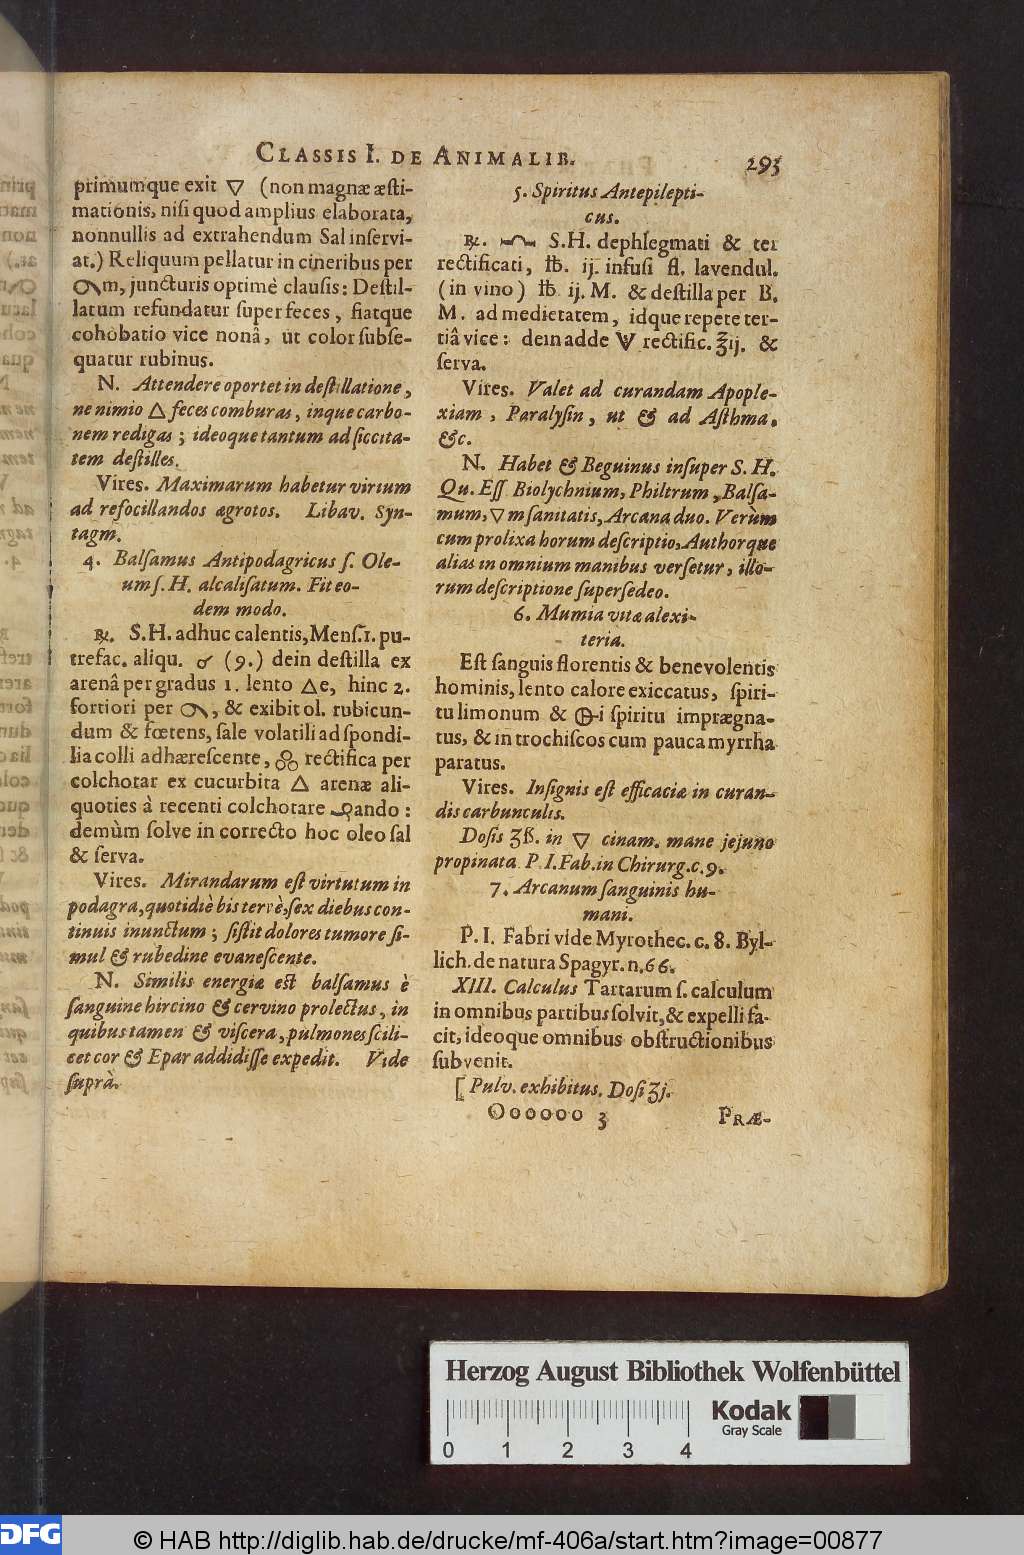 CLASSIS I. DE ANIMALIB. 293
primumque exit 🜄 (non magnæ æsti-
mationis, nisi quod amplius elaborata,
nonnullis ad extrahendum Sal inservi-
at.) Reliquum pellatur in cineribus per
m, juncturis optimè clausis: Destil-
latum refundatur super feces, fiatque
cohobatio vice nonâ, ut color subse-
quatur rubinus.
N. Attendere oportet in destillatione,
ne nimio 🜂 feces comburas, inque carbo-
nem redigas; ideoque tantum ad siccita-
tem destilles.
Vires. Maximarum habetur virium
ad refocillandos ægrotos. Libav. Syn-
tagm.
4. Balsamus Antipodagricus s. Ole-
um s. H. alcalisatum. Fit eo-
dem modo.
℞. S.H. adhuc calentis, Mens.1. pu-
trefac. aliqu. ♂ (9.) dein destilla ex
arenâ per gradus 1. lento 🜂e, hinc 2.
fortiori per , & exibit ol. rubicun-
dum & fœtens, sale volatili ad spondi-
lia colli adhærescente, rectifica per
colchotar ex cucurbita 🜂 arenæ ali-
quoties à recenti colchotare ando:
demùm solve in correcto hoc oleo sal
& serva.
Vires. Mirandarum est virtutum in
podagra, quotidiè bis tervè, sex diebus con-
tinuis inunctum; sistit dolores tumore si-
mul & rubedine evanescente.
N. Similis energiæ est balsamus è
sanguine hircino & cervino prolectus, in
quibus tamen & viscera, pulmones scili-
cet cor & Epar addidisse expedit. Vide
suprà.
5. Spiritus Antepilepti-
cus.
℞. S.H. dephlegmati & ter
rectificati, ℔. ij. infusi fl. lavendul.
(in vino) ℔ ij. M. & destilla per B.
M. ad medietatem, idque repete ter-
tiâ vice: dein adde rectific. ℥ij. &
serva.
Vires. Valet ad curandam Apople-
xiam, Paralysin, ut & ad Asthma.
&c.
N. Habet & Beguinus insuper S. H.
Qu. Ess Biolychnium, Philtrum, Balsa-
mum, 🜄m sanitatis, Arcana duo. Verùm
cum prolixa horum descriptio, Authorque
alias in omnium manibus versetur, illo-
rum descriptione supersedeo.
6. Mumia vitæ alexi-
teria.
Est sanguis florentis & benevolentis
hominis, lento calore exiccatus, spiri-
tu limonum & i spiritu imprægna-
tus, & in trochiscos cum pauca myrrha
paratus.
Vires. Insignis est efficaciæ in curan-
dis carbunculis.
Dosis ʒß. in 🜄 cinam. mane jejuno
propinata P. I. Fab. in Chirurg. c. 9.
7. Arcanum sanguinis hu-
mani.
P. I. Fabri vide Myrothec. c. 8. Byl-
lich. de natura Spagyr. n. 66.
XIII. Calculus Tartarum s. calculum
in omnibus partibus solvit, & expelli fa-
cit, ideoque omnibus obstructionibus
subvenit.
[ Pulv. exhibitus. Dosi ʒj.
Oooooo 3 PRÆ-
Herzog August Bibliothek Wolfenbüttel
Kodak
Gray Scale
0 1 2 3 4
DFG
© HAB http://diglib.hab.de/drucke/mf-406a/start.htm?image=00877